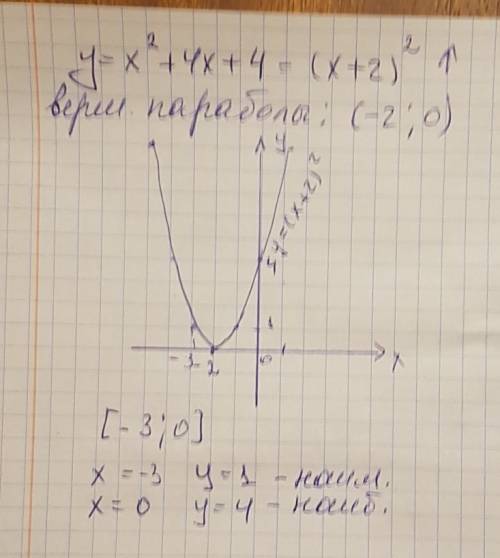 y = x² + 4x + 4 = (x+2)² ↑
верш. параболы: (-2; 0)
y
y=(x+2)²
1
-3
-2
0
x
[-3; 0]
x = -3 y = 1 - наим.
x = 0 y = 4 - наиб.